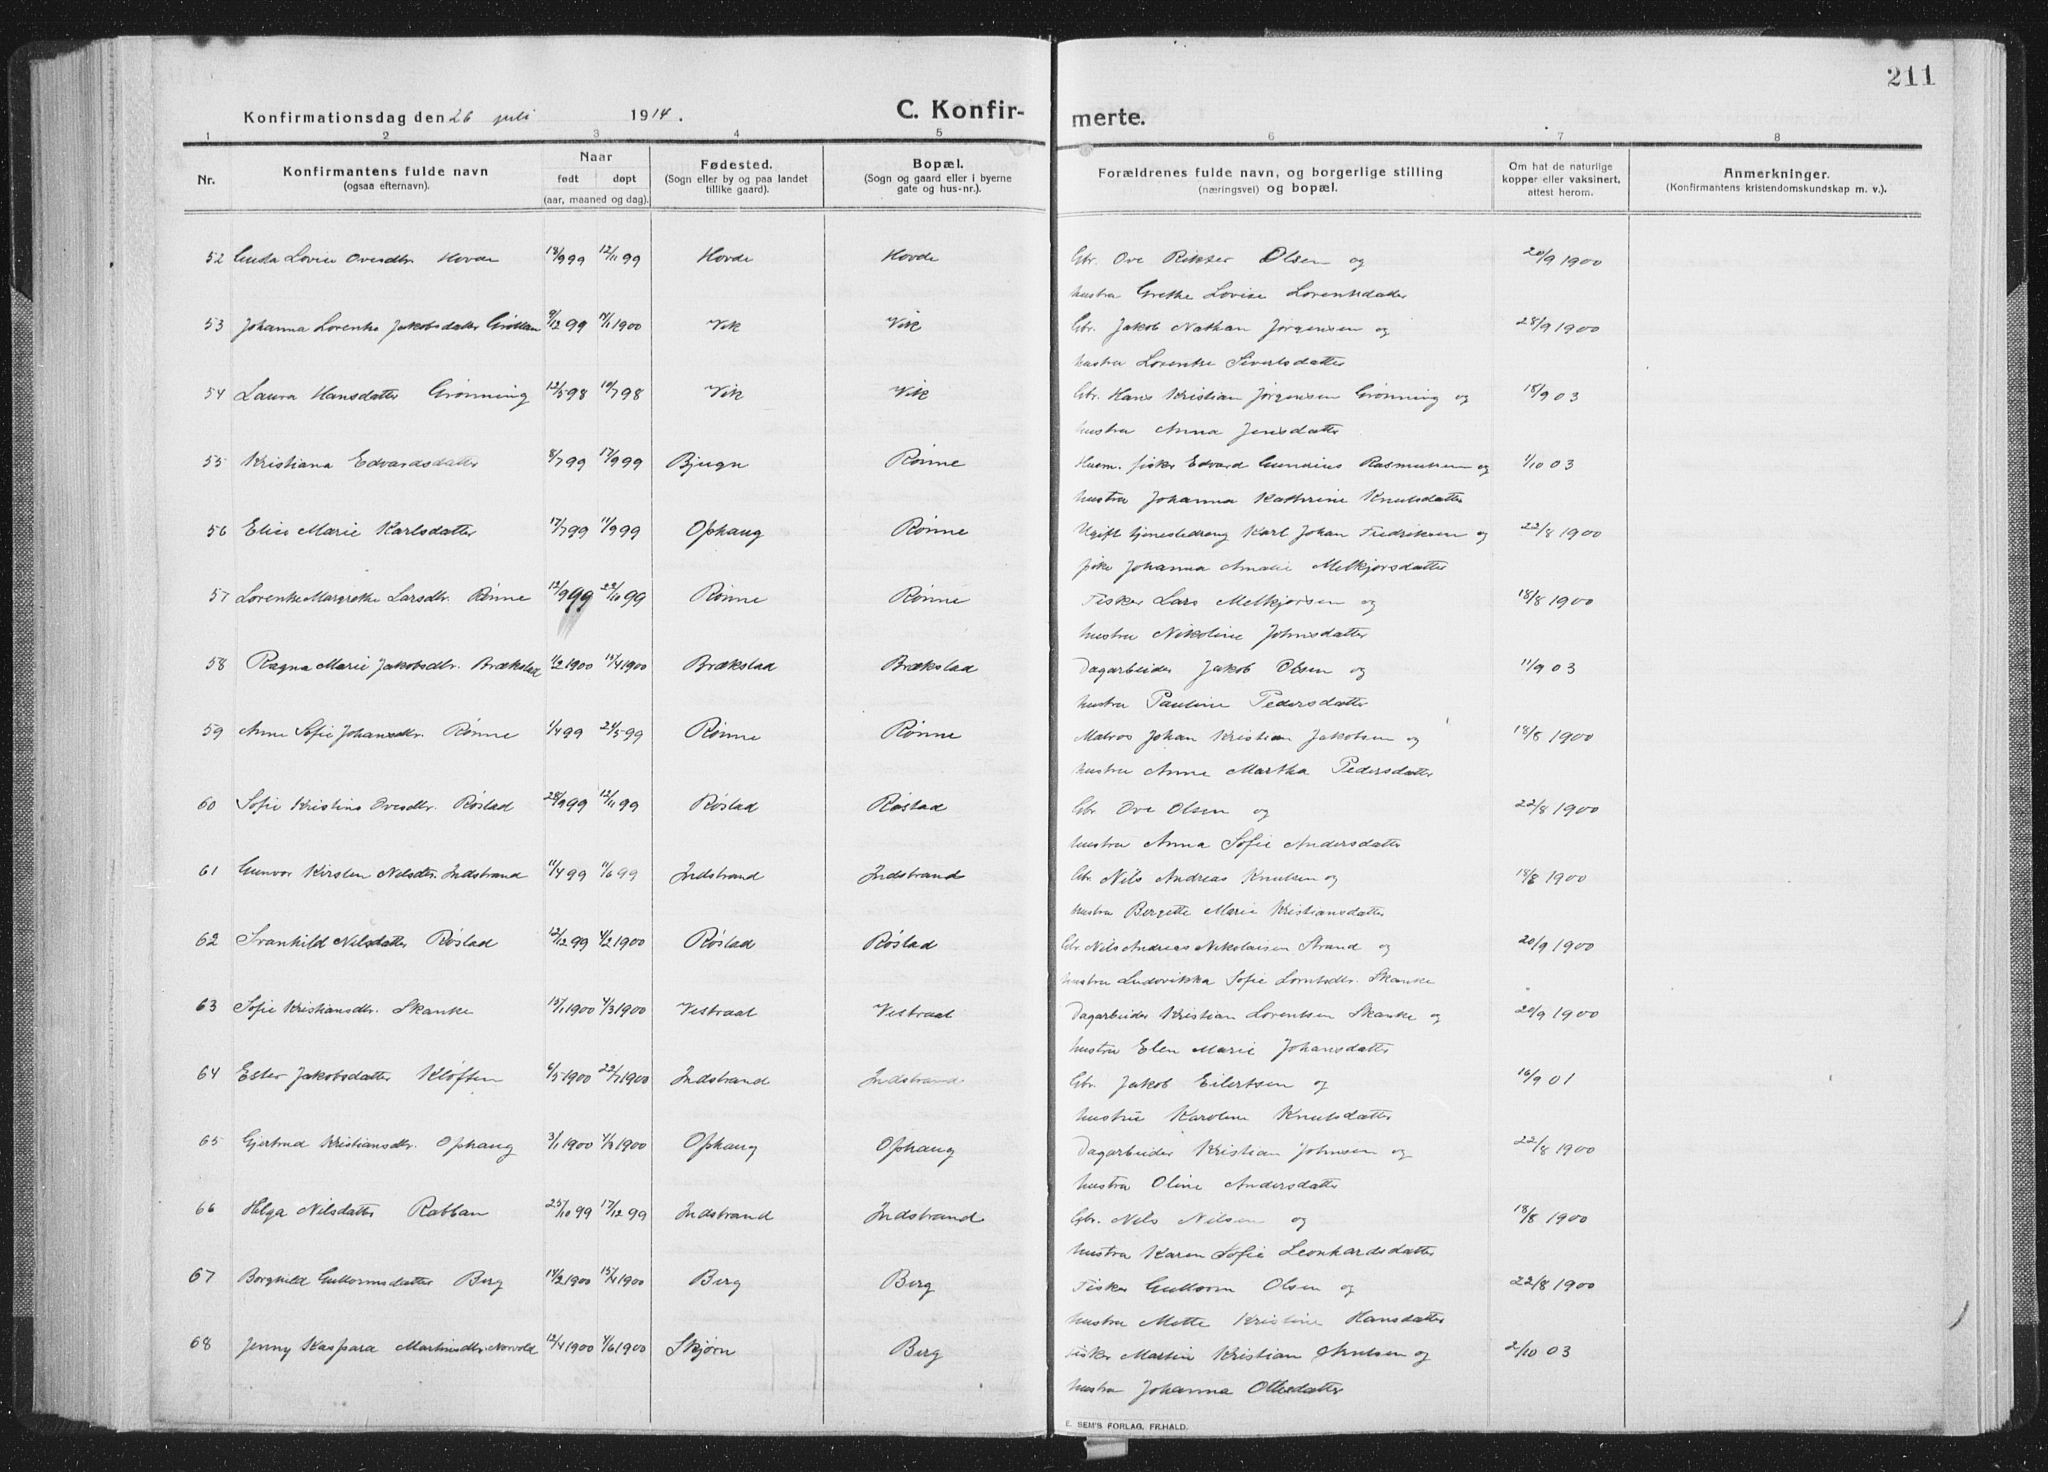 211
Konfirmationsdag den 26 juli 1914.
C. Konfir-
merte.
1 2 3 4 5 6 7 8
Nr.
Konfirmantens fulde navn
(ogsaa efternavn).
Naar
født døpt
(aar, maaned og dag).
Fødested.
(Sogn eller by og paa landet
tillike gaard).
Bopæl.
(Sogn og gaard eller i byerne
gate og hus-nr.).
Forældrenes fulde navn, og borgerlige stilling
(næringsvei) og bopæl.
Om hat de naturlige
kopper eller vaksinert,
attest herom.
Anmerkninger.
(Konfirmantens kristendomskundskap m. v.).
52 Lovise Ovesdtr. Hovde 12/11 99 Hovde Hovde Gbr. Ove Rikter Olsen og 20/9 1900
hustru Grethe Lovise Lorentsdatter
53 Johanna Lorentse Jakobsdatter 9/12 99 Vik Vik Gbr. Jakob Nathan Jørgensen og 28/9 1900
hustru Lorentse Sivertsdatter
54 Laura Hansdatter Grønning 12/5 98 10/7 98 Vik Vik Gbr. Hans Kristian Jørgensen Grønning og 18/9 03
hustru Anna Jensdatter
55 Kristiana Edvardsdatter 8/7 99 17/9 99 Bjugn Rønne Husm. fisker Edvard Rasmussen og 1/10 03
hustru Johanna Kathrine Knutsdatter
56 Elise Marie Karlsdatter 17/7 99 11/9 99 Ophaug Rønne Ugift tjenestedreng Karl Johan Fredriksen og 22/8 1900
pike Johanna Amalie Melkjorsdatter
57 Lorentse Margrethe Larsdtr. Rønne 12/9 99 22/10 99 Rønne Rønne Fisker Lars Melkjorsen og 18/8 1900
hustru Nikoline Johnsdatter
58 Ragna Marie Jakobsdtr. Brækstad 1/2 1900 15/4 1900 Brækstad Brækstad Dagarbeider Jakob Olsen og 11/9 03
hustru Pauline Pedersdatter
59 Anne Sofie Johansdtr. Rønne 1/4 99 24/5 99 Rønne Rønne Matros Johan Kristian Jakobsen og 18/8 1900
hustru Anne Martha Pedersdatter
60 Sofie Kristine Ovesdtr. Røstad 28/9 99 12/11 99 Røstad Røstad Gbr Ove Olsen og 22/8 1900
hustru Anna Sofie Andersdatter
61 Gunvor Kirsten Nilsdtr. Indstrand 11/4 99 11/6 99 Indstrand Indstrand Gbr Nils Andreas Knutsen og 18/8 1900
hustru Bergette Marie Kristiansdatter
62 Svanhild Nilsdatter Røstad 12/12 99 4/2 1900 Røstad Røstad Gbr. Nils Andreas Nikolaisen Strand og 20/9 1900
hustru Ludovikka Sofie Lorntsdtr. Skanke
63 Sofie Kristiansdtr. Skanke 15/1 1900 4/3 1900 Vestraat Vestraat Dagarbeider Kristian Lorentsen Skanke og 20/9 1900
hustru Elen Marie Johansdatter
64 Ester Jakobsdatter Kløften 6/5 1900 22/7 1900 Indstrand Indstrand Gbr. Jakob Eilertsen og 16/9 01
hustru Karoline Knutsdatter
65 Gjertrud Kristiansdtr. Ophaug 3/1 1900 4/3 1900 Ophaug Ophaug Dagarbeider Kristian Johnsen og 22/8 1900
hustru Oline Andersdatter
66 Helga Nilsdatter Rabban 25/10 99 17/12 99 Indstrand Indstrand Gbr. Nils Nilsen og 18/8 1900
hustru Karen Sofie Leonhardsdatter
67 Borghild Guttormsdatter Berg 14/2 1900 15/4 1900 Berg Berg Fisker Guttorm Olsen og 22/8 1900
hustru Mette Kristine Hansdatter
68 Jenny Kaspara Martinsdtr. Norvold 12/4 1900 4/6 1900 Skjørn Berg Fisker Martin Kristian og 2/10 03
hustru Johanna Ottesdatter
E. SEM'S FORLAG, FR.HALD.